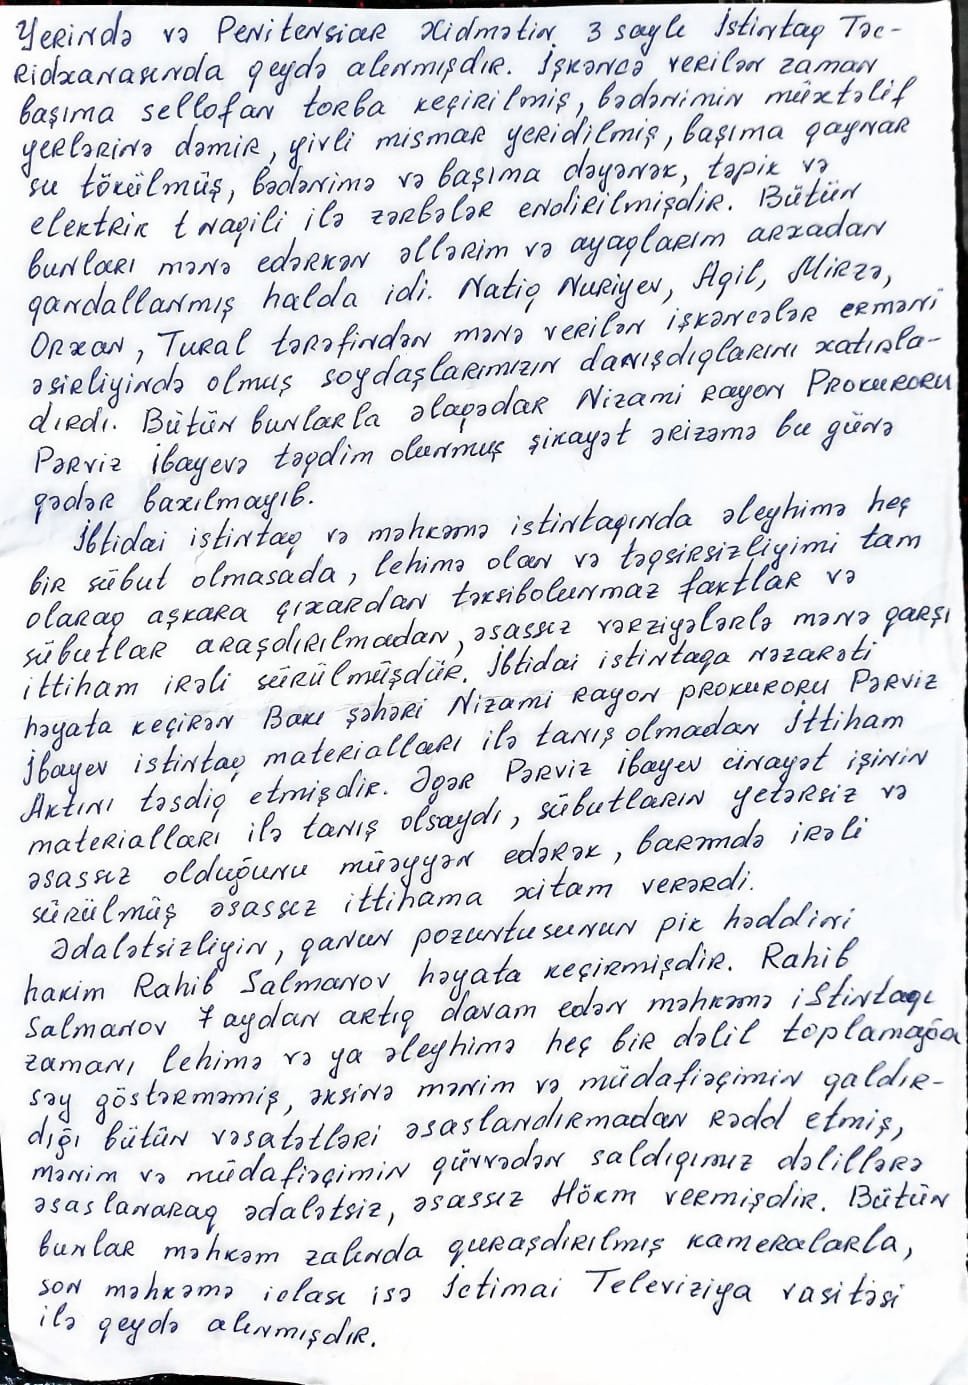 Yerində və Penitensiar Xidmətin 3 saylı İstintaq Təc-
Ridxanasında qeydə alınmışdır. İşkəncə verilən zaman
başıma sellofan torba keçirilmiş, bədənimin müxtəlif
yerlərinə dəmir, yivli mismar yeridilmiş, başıma qaynar
su tökülmüş, bədənimə və başıma dəyənək, təpik və
elektrik tnaqili ilə zərbələr endirilmişdir. Bütün
bunları mənə edərkən əllərim və ayaqlarım arxadan
qandallanmış halda idi. Natiq Nuriyev, Aqil, Mirzə,
Orxan, Tural tərəfindən mənə verilən işkəncələr erməni
əsirliyində olmuş soydaşlarımızın danışdıqlarını xatırla-
dırdı. Bütün bunlarla əlaqədar Nizami rayon Prokuroru
Pərviz İbayevə təqdim olunmuş şikayət ərizəmə bu günə
qədər baxılmayıb.
İbtidai istintaq və məhkəmə istintaqında əleyhimə heç
bir sübut olmasada, lehimə olan və təqsirsizliyimi tam
olaraq aşkara çıxardan təksibolunmaz faktlar və
sübutlar araşdırılmadan, əsassız vərziyələrlə mənə qarşı
ittiham irəli sürülmüşdür. İbtidai istintaqa nəzarəti
həyata keçirən Bakı şəhəri Nizami rayon prokuroru Pərviz
İbayev istintaq materialları ilə tanış olmadan İttiham
Aktını təsdiq etmişdir. Əgər Pərviz İbayev cinayət işinin
materialları ilə tanış olsaydı, sübutların yetərsiz və
əsassız olduğunu müəyyən edərək, barəmdə irəli
sürülmüş əsassız ittihama xitam verərdi.
Ədalətsizliyin, qanun pozuntusunun pik həddini
hakim Rahib Salmanov həyata keçirmişdir. Rahib
Salmanov 7 aydan artıq davam edən məhkəmə istintaqı
zamanı lehimə və ya əleyhimə heç bir dəlil toplamağa
səy göstərməmiş, əksinə mənim və müdafiəçimin qaldır-
dığı bütün vəsatətləri əsaslandırmadan rədd etmiş,
mənim və müdafiəçimin qüvvədən saldığımız dəlillərə
əsaslanaraq ədalətsiz, əsassız Hökm vermişdir. Bütün
bunlar məhkəm zalında quraşdırılmış kameralarla,
son məhkəmə iclası isə İctimai Televiziya vasitəsi
ilə qeydə alınmışdır.